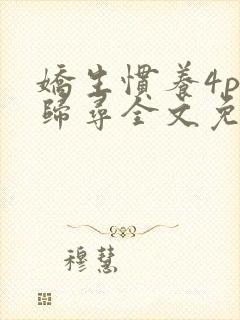 嬌生慣養4p
歸尋全文免
穆慧